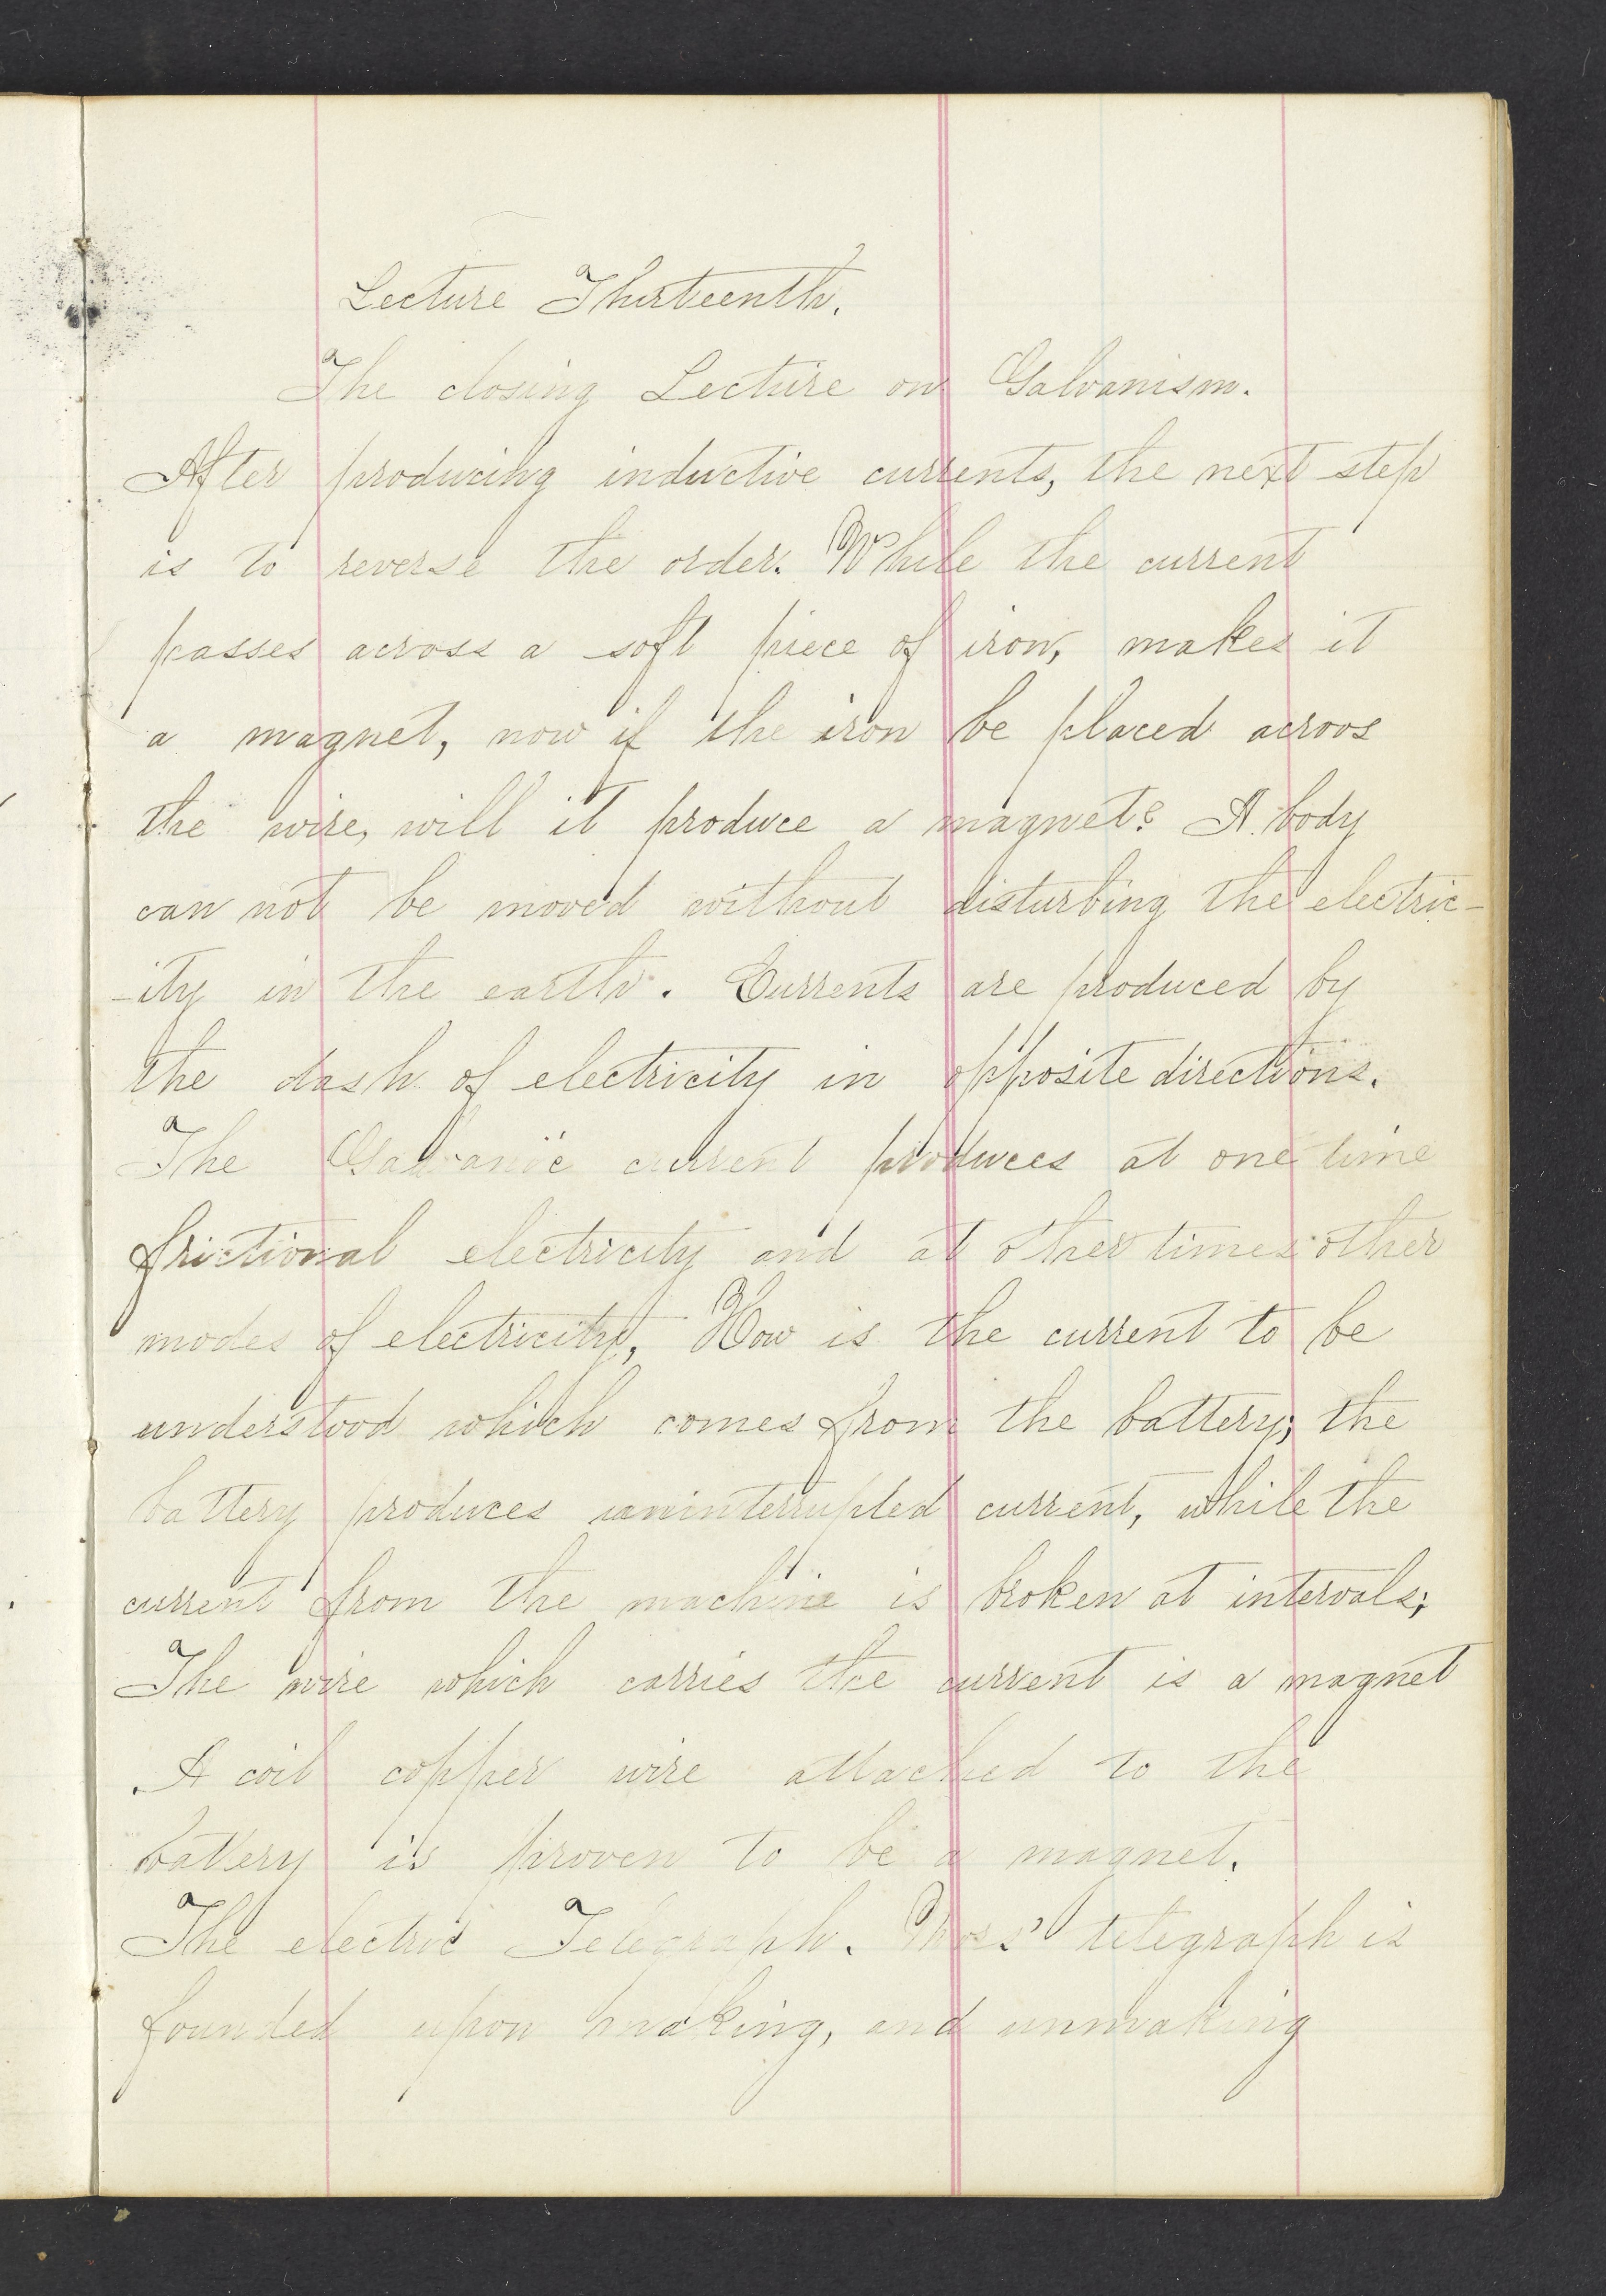 Lecture Thirteenth.
The closing Lecture on Galvanism.
After producing inductive currents, the next step
is to reverse the order. While the current
passes across a soft piece of iron, makes it
a magnet, now if the iron be placed acroos
the wire, will it produce a magnet? A body
can not be moved without disturbing the electric-
-ity in the earth. Currents are produced by
the dash of electricity in opposite directions.
The Galvanic current produces at one time
frictional electricity and at other times other
modes of electricity, How is the current to be
understood which comes from the battery; the
battery produces uninterrupted current, while the
current from the machine is broken at intervals;
The wire which carries the current is a magnet
. A coil copper wire attached to the
battery is proven to be a magnet.
The electric Telegraph. Mors' telegraph is
founded upon making, and unmaking